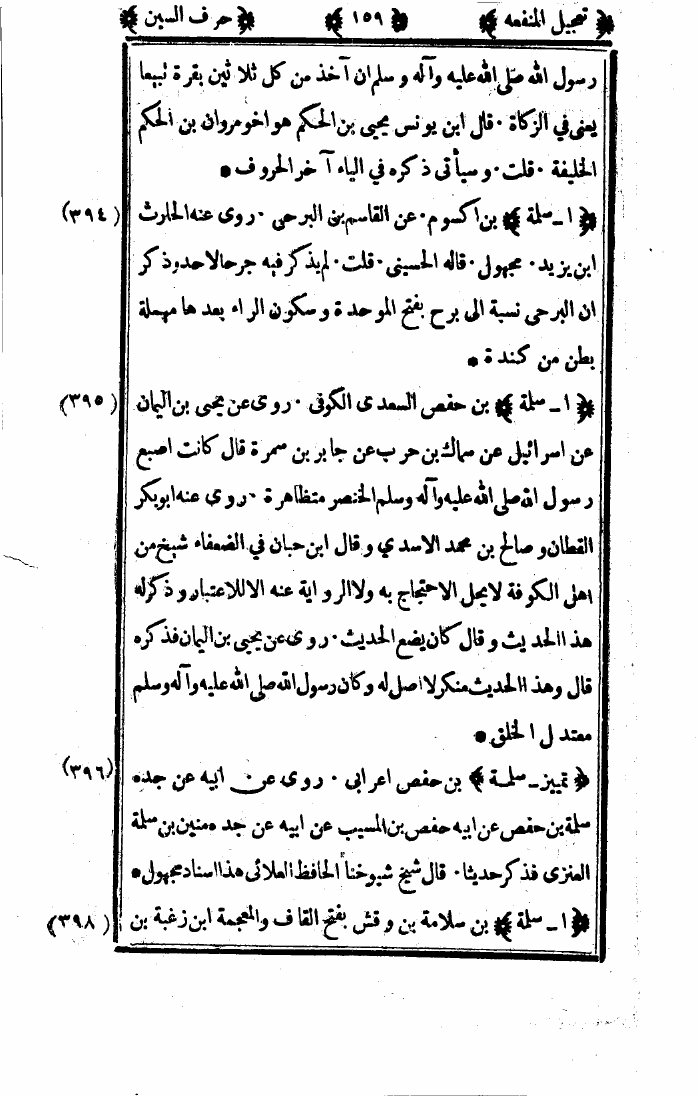 ﴿ تعجيل المنفعه ﴾ ﴿ ١٥٩ ﴾ ﴿ حرف السين ﴾
رسول الله صلى الله عليه وآله وسلم ان آخذ من كل ثلاثين بقرة تبيعا
يعنى في الزكاة ٠ قال ابن يونس يحيى بن الحكم هو اخو مروان بن الحكم
الخليفة ٠ قلت ٠ وسيأتى ذكره في الياء آخر الحروف *
﴿ ا ـ سلمة ﴾ بن اكسوم ٠ عن القاسم بن البرحى ٠ روى عنه الحارث (٣٩٤)
ابن يزيد ٠ مجهول ٠ قاله الحسينى ٠ قلت ٠ لم يذكر فيه جرحا لاحد وذكر
ان البرحى نسبة الى برح بفتح الموحدة وسكون الراء بعدها مهملة
بطن من كندة *
﴿ ا ـ سلمة ﴾ بن حفص السعدى الكوفى ٠ روى عن يحيى بن اليمان (٣٩٥)
عن اسرائيل عن سماك بن حرب عن جابر بن سمرة قال كانت اصبع
رسول الله صلى الله عليه وآله وسلم الخنصر متظاهرة ٠ روى عنه ابوبكر
القطان وصالح بن محمد الاسدي وقال ابن حبان في الضعفاء شيخ من
اهل الكوفة لايحل الاحتجاج به ولا الرواية عنه الا للاعتبار وذكر له
هذا الحديث وقال كان يضع الحديث ٠ روى عن يحيى بن اليمان فذكره
قال وهذا الحديث منكر لا اصل له وكان رسول الله صلى الله عليه وآله وسلم
معتدل الخلق *
﴿ تمييز ـ سلمة ﴾ بن حفص اعرابى ٠ روى عن ابيه عن جده (٣٩٦)
سلمة بن حفص عن ابيه حفص بن المسيب عن ابيه عن جده منين بن سلمة
العنزى فذكر حديثا ٠ قال شيخ شيوخنا الحافظ العلائى هذا اسناد مجهول *
﴿ ا ـ سلمة ﴾ بن سلامة بن وقش بفتح القاف والمعجمة ابن زغبة بن (٣٩٨)